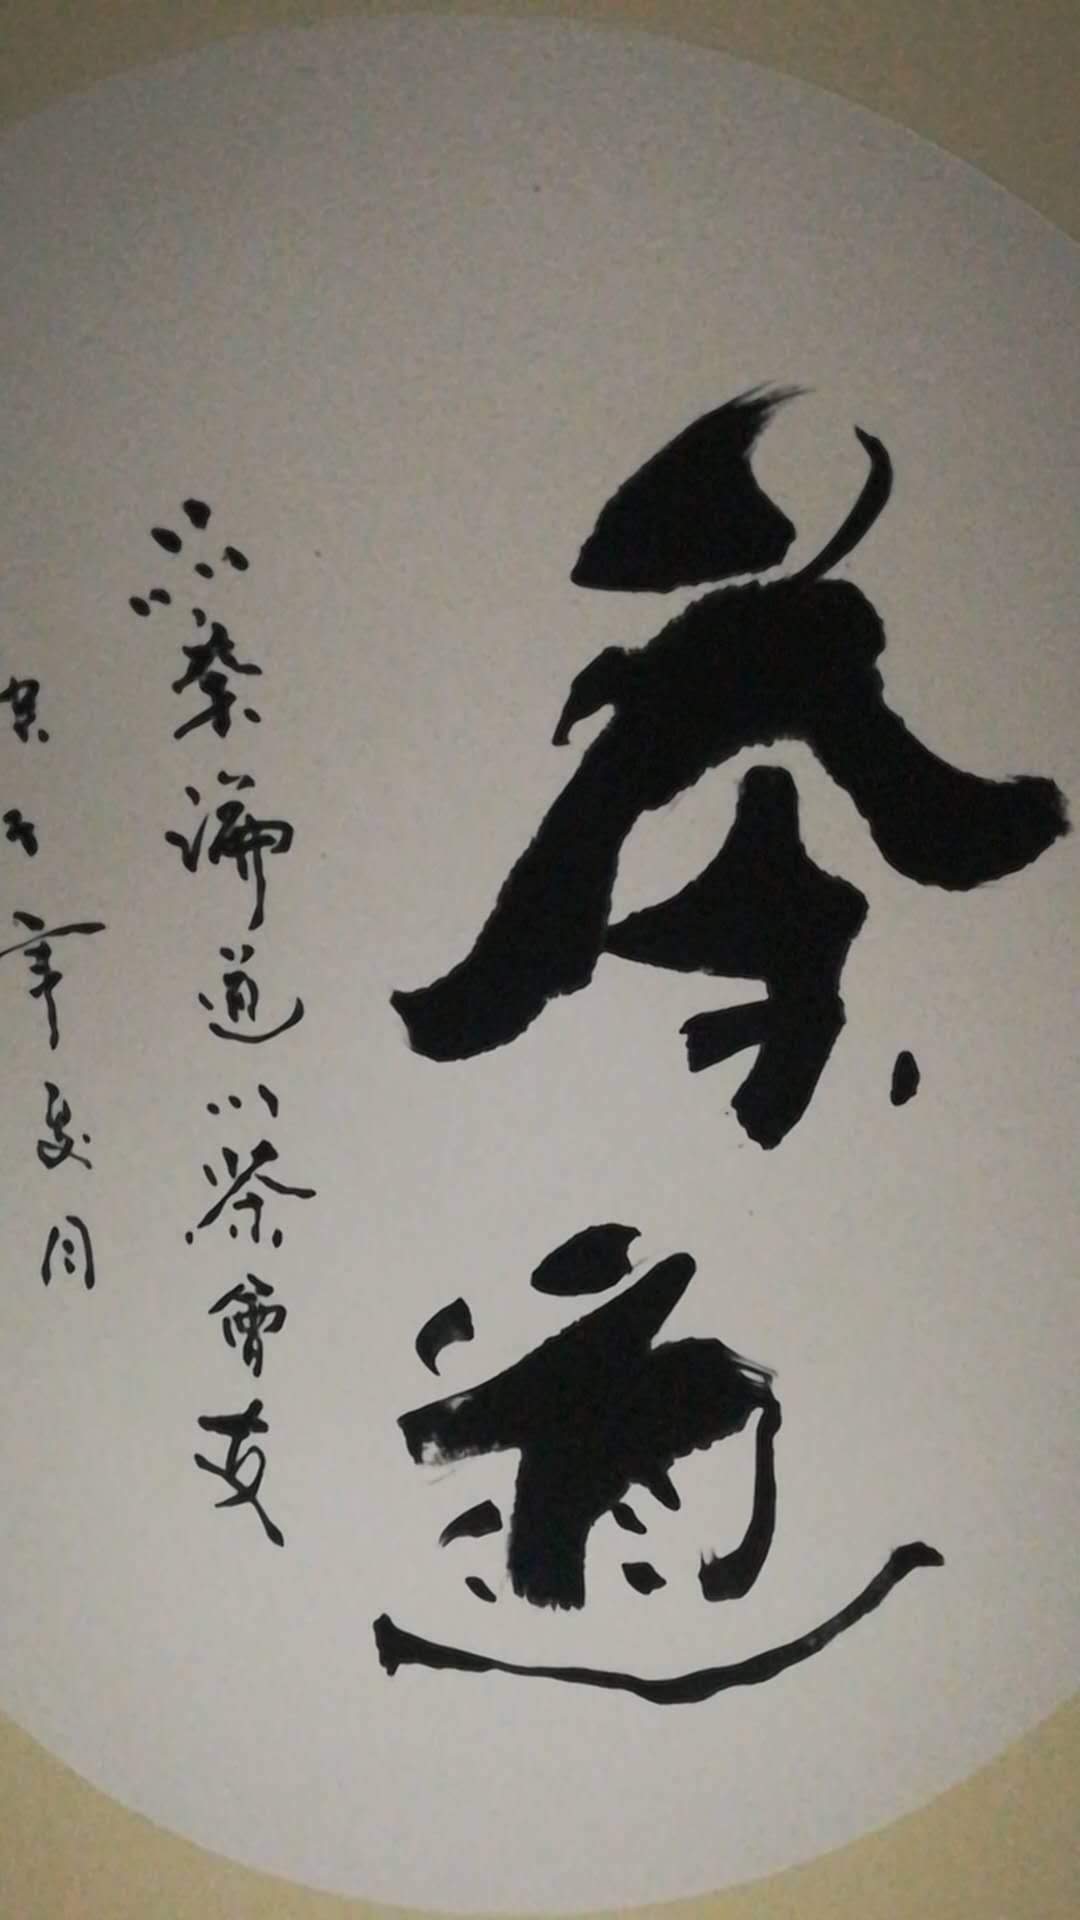 茶道
以茶論道以茶會友
年夏月